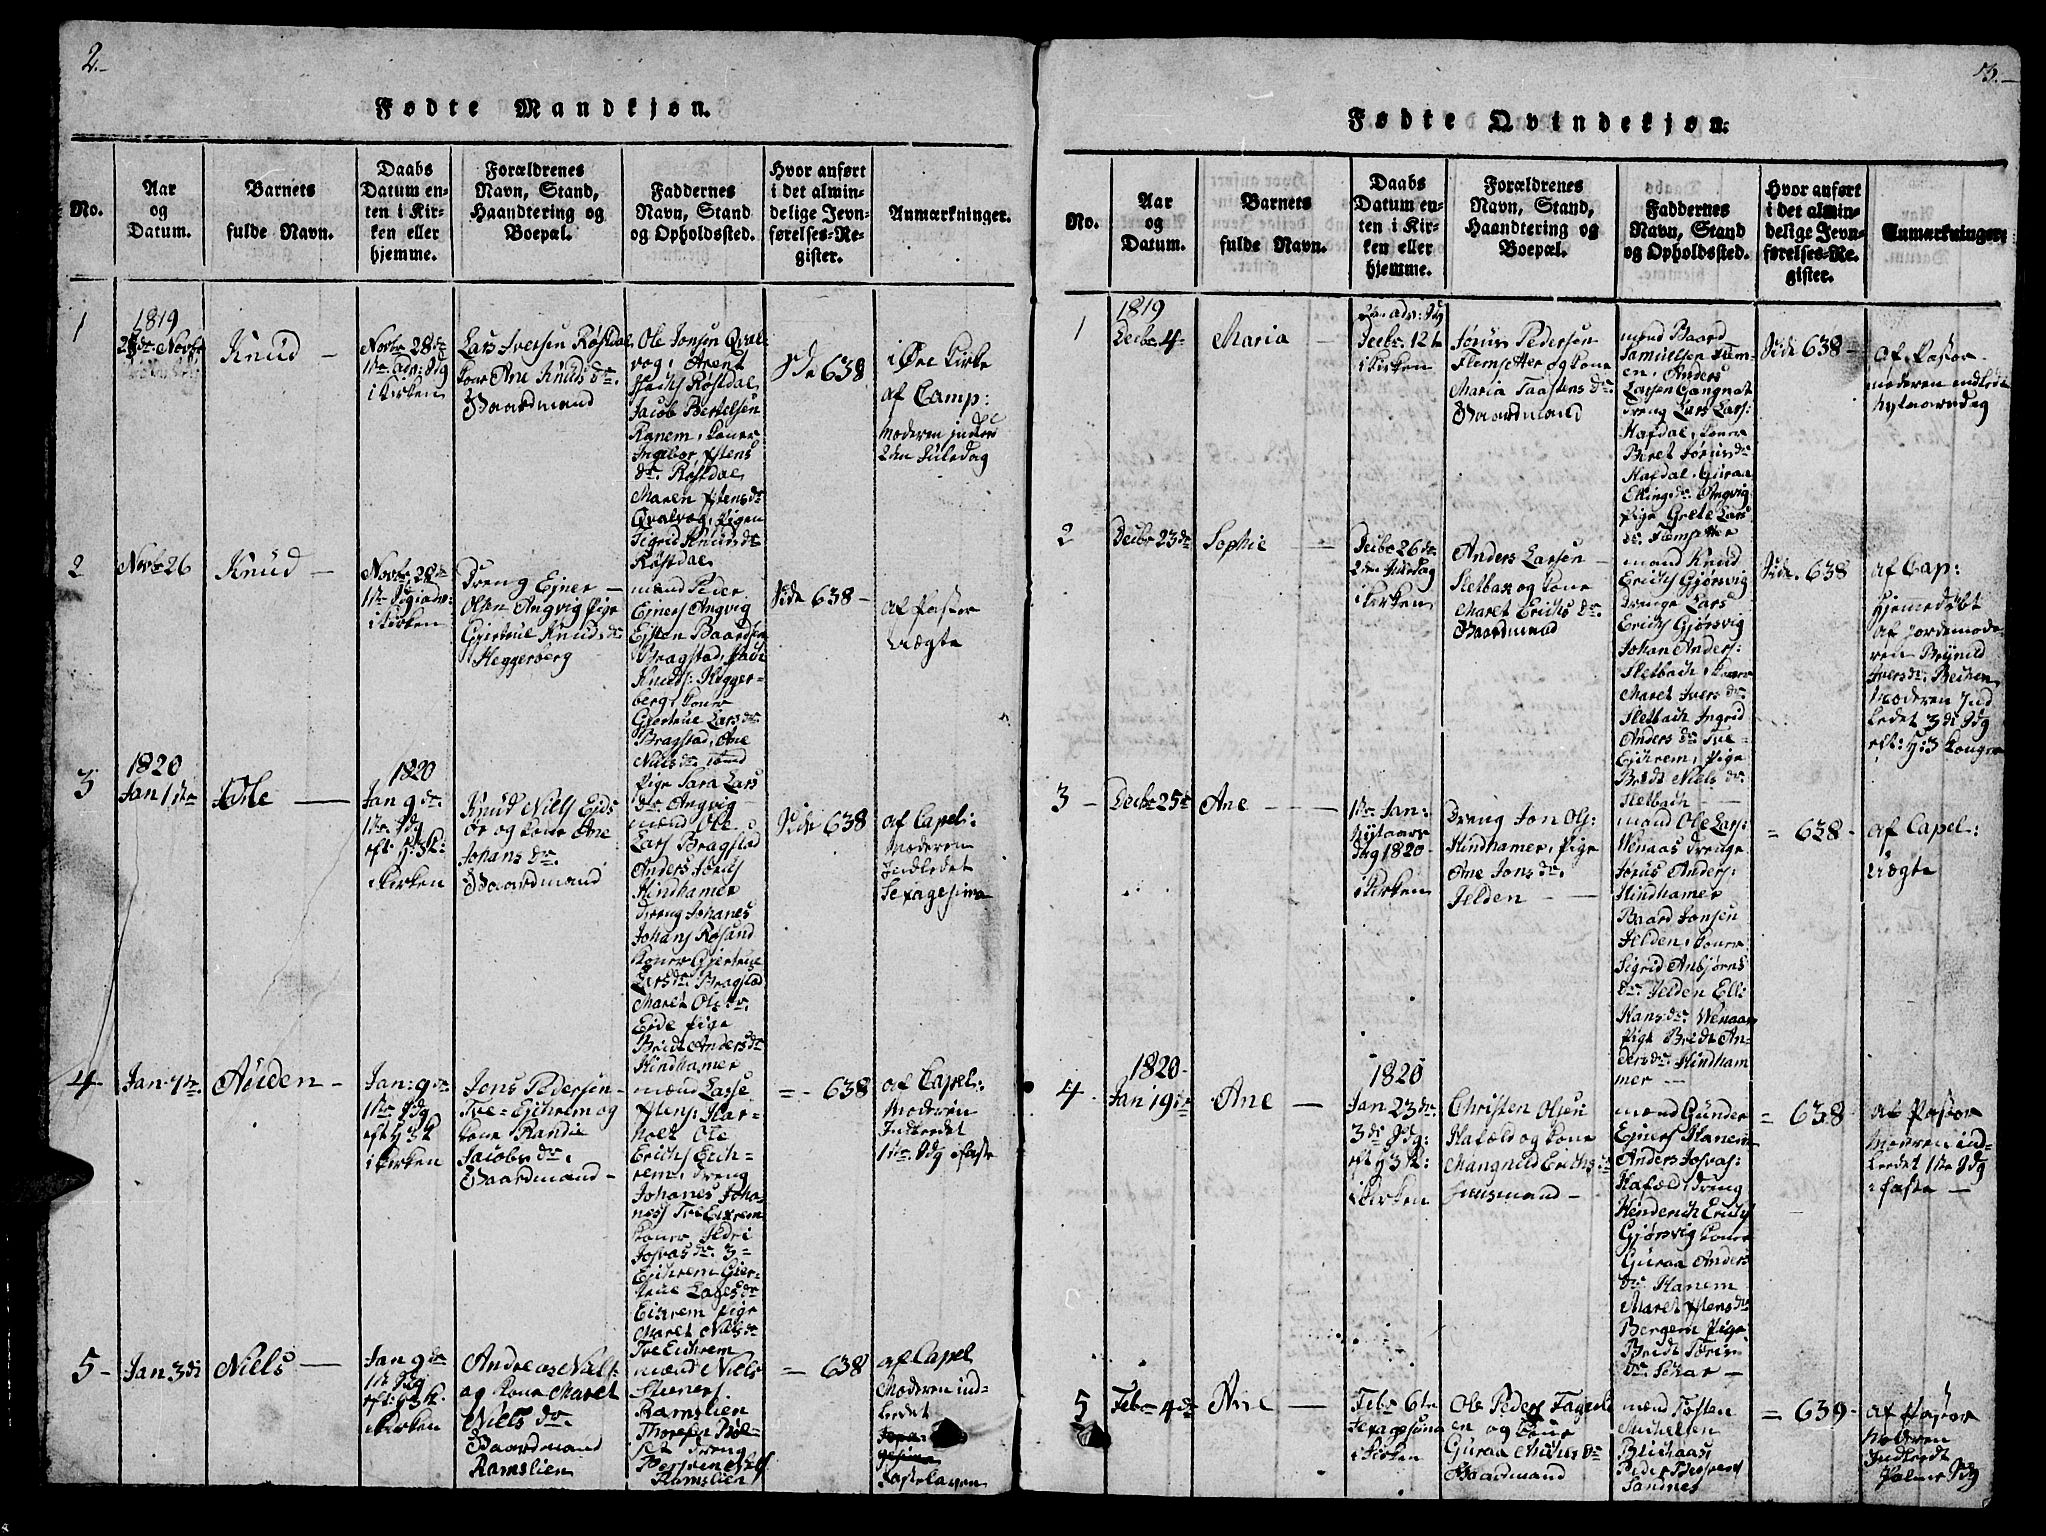 2.
Fødte Mandkjøn.
No.
Aar
og
Datum.
Barnets
fulde Navn.
Daabs
Datum en-
ten i Kir-
ken eller
hjemme.
Forældrenes
Navn, Stand,
Haandtering og
Boepæl.
Faddernes
Navn, Stand
og Opholdssted.
Hvor anført
i det almin-
delige Jevn-
førelses-Re-
gister.
Anmærkninger.
1
1819
Novbr
Knud
Novbr 28de
i Kirken
Lars Iversen Røstdal
Kone Ane Knuds dr.
Gaardmand
Ole Jonsen Qval
vog, Arent
Røstdal
Jacob Bertelsen
Ranem, koner
Ingebor Istens
dr. Røstdal
Maren Istens dr
Qvalvog, pigen
Sigrid Knuds dr
Røstdal
Side 638
i Øre Kirke
af Camp:
Moderen
2den Juledag
2
Novbr 26
Knud
Novbr 28de
i Kirken
Dreng Ejner
Olsen Angvig Pige
Gjertrue Knuds dr
Heggerberg
mænd Peder
Ejners Angvig
Ejsten Baards
Bragstad,
Knuds: Hegger-
berg, koner
Gjertrue Lars dr.
Bragstad, Ane
Niels dr.
Pige Sara Lars
dr. Angvig
Side 638
af Pastor
Uægte
3
1820
Jan 1ste
Ole
1820
Jan 9de
1ste Sdg
eft: H: 3 K:
i Kirken
Knud Niels Eids
ør og kone Ane
Johans dr.
Gaardmand
mænd Ole
Lars Bragstad
Anders
Hindhamer
dreng Johanes
Johans Røsand
koner Gjertrue
Lars dr. Bragstad
Maret Ols dr.
Eide pige
Bridt Anders dr
Hindhamer
Side 638
af Capel:
Moderen
Indledet
Sexagesima
4
Jan 7de
Aöiden
Jan: 9de
1ste Sdg
eft H 3 K
i Kirken
Jons Pedersen
Tve-Ejchrem og
kone Randie
Jacobs dr.
Gaardmand
mænd Lasse
Istens: Har-
holt Ole
Erichs Eich-
rem, dreng
Johanes Joha-
nes Tve Eichrem
koner Sidri
Josvas dr.
Ejchrem Gjer-
true Lases dr
Eichrem pige
Maret Niels dr
Tve Eichrem
= 638
af Capel:
Moderen
Indledet
1ste Sdg i faste
5
Jan 3di
Niels
Jan 9de
1ste Sdg
eft: H 3 K
i Kirken
Andreas Niels:
og kone Maret
Niels dr.
Gaardmand
Ramslien
mænd Niels
Steners
Ramslien
dreng
Ramslien
= 638
af Capel
Moderen ind-
ledet
Fastelaven
3.
Fødte Qvindekjøn.
No.
Aar
og
Datum.
Barnets
fulde Navn.
Daabs
Datum en-
ten i Kir-
ken eller
hjemme.
Forældrenes
Navn, Stand,
Haandtering og
Boepæl.
Faddernes
Navn, Stand
og Opholdssted.
Hvor anført
i det almin-
delige Jevn-
førelses-Re-
gister.
Anmærkninger.
1
1819
Decbr 4
Maria
Decbr. 12te
i Kirken
Jørius Pedersen
Flemsetter og kone
Maria Taastens dr.
Gaardmand
mænd Baard
Samuelsen
Anders
Larsen Gangnat
dreng Lars Lars:
Hafdal, koner
Beret Jørius dr
Hafdal, Guraa
Elling dr. Angvig
pige Grete Lars
dr. Flemsetter
Side 638
af Pastor
moderen indledt
Nytaarsdag
2
Decbr 23de
Sophie
Decbr 26de
2den Juledag
i Kirken
Anders Larsen
Sletbax og kone
Maret Erichs dr.
Gaardmand
mænd Knud
Erichs Gjørsvig
drenge Lars
Erichs Gjørsvig
Johan Anders:
Sletbach, koner
Maret Ivers dr.
Sletbach Ingrid
Anders dr. Tve-
Ejchrem, pige
Bridt Niels dr.
Sletbach
Side 638
af Cap:
Hjemedøbt
af Jordemode-
ren Brynild
Ivers dr. Beihen
Moderen Ind
ledet 3di Sdg
eft: H: 3 Konger
3
Decbr 25de
Ane
1ste Jan:
Nytaars
dag 1820
i Kirken
Dreng Jon Ols:
Hindhamer, Pige
Ane Jons dr.
Jelden
mænd Ole Lars:
Wenaas drenge
Jørius Anders:
Hindhamer
Baard Jonsen
Jelden, koner
Sigrid Anbjørns
dr. Jelden Elli
Hans dr. Wenaas
pige Bridt An-
ders dr. Hindham
mer
= 638
af Capel:
Uægte
4
1820
Jan 19de
Ane
1820
Jan 23de
3di Sdg:
eft H 3 K:
i Kirken
Christen Olsen
Hafæld og kone
Mangnild Erichs dr
Huusmand
mænd Gunder
Ejners Hanem
Anders Josvas:
Hafæld, dreng
Hinderich Erichs
Gjørsvig koner
Guraa Anders
dr. Hanem
Maret Istens dr
Bergem pige
Bridt Sørin
dr. Schar
= 638
af Pastor
Moderen ind-
ledet 1ste Sdg
i faste
5
Febr 4de
Ane
Febr 6te
Sexagesima
i Kirken
Ole Peders Fagerlæ
en og kone
Guraa Michels dr
Gaardmand
mænd Tosten
Michelsen
Blichaas
Peder
Sandnes
= 639
af Pastor
Moderen
Indledt
Palme Sdg